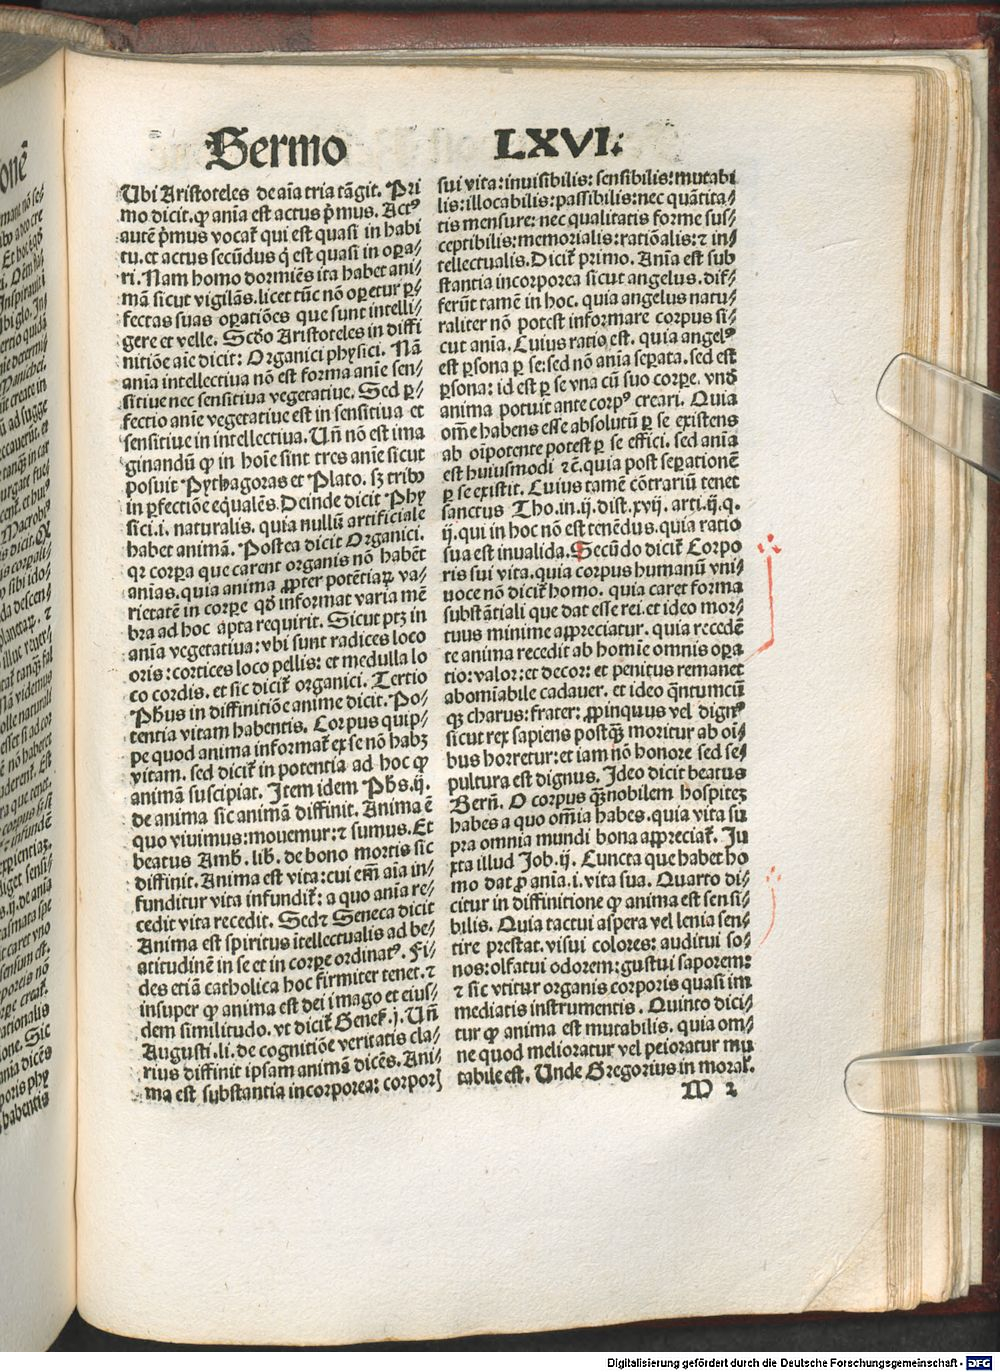 Sermo LXVI.
Ubi Aristoteles de aīa tria tãgit. Pri
mo dicit. ꝙ anīa est actus p̄mus. Actꝰ
autē p̄mus vocat̄ qui est quasi in habi
tu. et actus secūdus q̄ est quasi in oꝑa⸗
ri. Nam homo dormiēs ita habet ani⸗
mã sicut vigilãs. licet tūc nõ oꝑetur ꝑ⸗
fectas suas oꝑatiões que sunt intelli⸗
gere et velle. Scdo Aristoteles in diffi
nitiõe aīe dicit: Organici physici. Nã
anīa intellectiua nõ est forma anīe sen⸗
sitiue nec sensitiua vegetatiue. Sed ꝑ⸗
fectio anīe vegetatiue est in sensitiua et
sensitiue in intellectiua. Uñ nõ est ima
ginandū ꝙ in hoīe sint tres anīe sicut
posuit Pythagoras et Plato. sꝫ tribꝰ
in ꝑfectiõe eq̄ualēs. Deinde dicit Phy
sici. i. naturalis. quia nullū artificiale
habet animã. Postea dicit Organici.
qꝛ corꝑa que carent organis nõ habēt
anīas. quia anima ꝓpter potētiaꝝ va⸗
rietatē in corꝑe qd̄ informat varia mē
bra ad hoc apta requirit. Sicut ptꝫ in
anīa vegetatiua: vbi sunt radices loco
oris: cortices loco pellis: et medulla lo
co cordis. et sic dicit̄ organici. Tertio
Ph̄us in diffinitiõe anime dicit. Po⸗
tentia vitam habentis. Corpus quip⸗
pe quod anima informat̄ ex se nõ habꝫ
vitam. sed dicit̄ in potentia ad hoc ꝙ
animã suscipiat. Item idem Ph̄s. ij.
de anima sic animã diffinit. Anima ē
quo viuimus: mouemur: ⁊ sumus. Et
beatus Amb. lib. de bono mortis sic
diffinit. Anima est vita: cui em̄ aīa in⸗
funditur vita infundit̄: a quo anīa re⸗
cedit vita recedit. Sedꝫ Seneca dicit
Anima est spiritus ītellectualis ad be⸗
atitudinē in se et in corꝑe ordinatꝰ. Fi⸗
des etiã catholica hoc firmiter tenet. ⁊
insuper ꝙ anima est dei imago et eius⸗
dem similitudo. vt dicit̄ Geneẜ. j. Uñ
Augusti. li. de cognitiõe veritatis cla⸗
rius diffinit ipsam animã dicēs. Ani⸗
ma est substantia incorporea: corporꝭ
sui vita: inuisibilis: sensibilis: mutabi
lis: illocabilis: passibilis: nec quãtita⸗
tis mensure: nec qualitatis forme sus⸗
ceptibilis: memorialis: ratiõalis: ⁊ in⸗
tellectualis. Dicit̄ primo. Anīa est sub
stantia incorporea sicut angelus. dif⸗
ferūt tamē in hoc. quia angelus natu⸗
raliter nõ potest informare corpus si⸗
cut anīa. Cuius ratio est. quia angelꝰ
est ꝑsona ꝑ se: sed nõ anīa seꝑata. sed est
ꝑsona: id est ꝑ se vna cū suo corꝑe. vnd̄
anima potuit ante corpꝰ creari. Quia
om̄e habens esse absolutū ꝑ se existens
ab oīpotente potest ꝑ se effici. sed anīa
est huiusmodi ⁊c̄. quia post seꝑationē
ꝑ se existit. Cuius tamē cõtrariū tenet
sanctus Tho. in. ij. dist. xvij. arti. ij. q.
ij. qui in hoc nõ est tenēdus. quia ratio
sua est inualida. Secūdo dicit̄ Corpo
ris sui vita. quia corpus humanū vni⸗
uoce nõ dicit̄ homo. quia caret forma
substãtiali que dat esse rei. et ideo mor⸗
tuus minime appreciatur. quia recedē
te anima recedit ab homīe omnis oꝑa
tio: valor: et decor: et penitus remanet
abomīabile cadauer. et ideo q̄ntumcū
qꝫ charus: frater: ꝓpinquus vel dignꝰ
sicut rex sapiens postqꝫ moritur ab oī⸗
bus horretur: et iam nõ honore sed se⸗
pultura est dignus. Ideo dicit beatus
Berñ. O corpus q̄ꝫ nobilem hospiteꝫ
habes a quo om̄ia habes. quia vita su
pra omnia mundi bona appreciat̄. Iu
xta illud Job. ij. Cuncta que habet ho
mo dat ꝓ anīa. i. vita sua. Quarto di⸗
citur in diffinitione ꝙ anima est sensi⸗
bilis. Quia tactui aspera vel lenia sen⸗
tire prestat. visui colores: auditui so⸗
nos: olfatui odorem: gustui saporem:
⁊ sic vtitur organis corporis quasi im
mediatis instrumentis. Quinto dici⸗
tur ꝙ anima est mutabilis. quia om⸗
ne quod melioratur vel peioratur mu
tabile est. Unde Gregorius in moral̄.
M 2
Digitalisierung gefördert durch die Deutsche Forschungsgemeinschaft - DFG